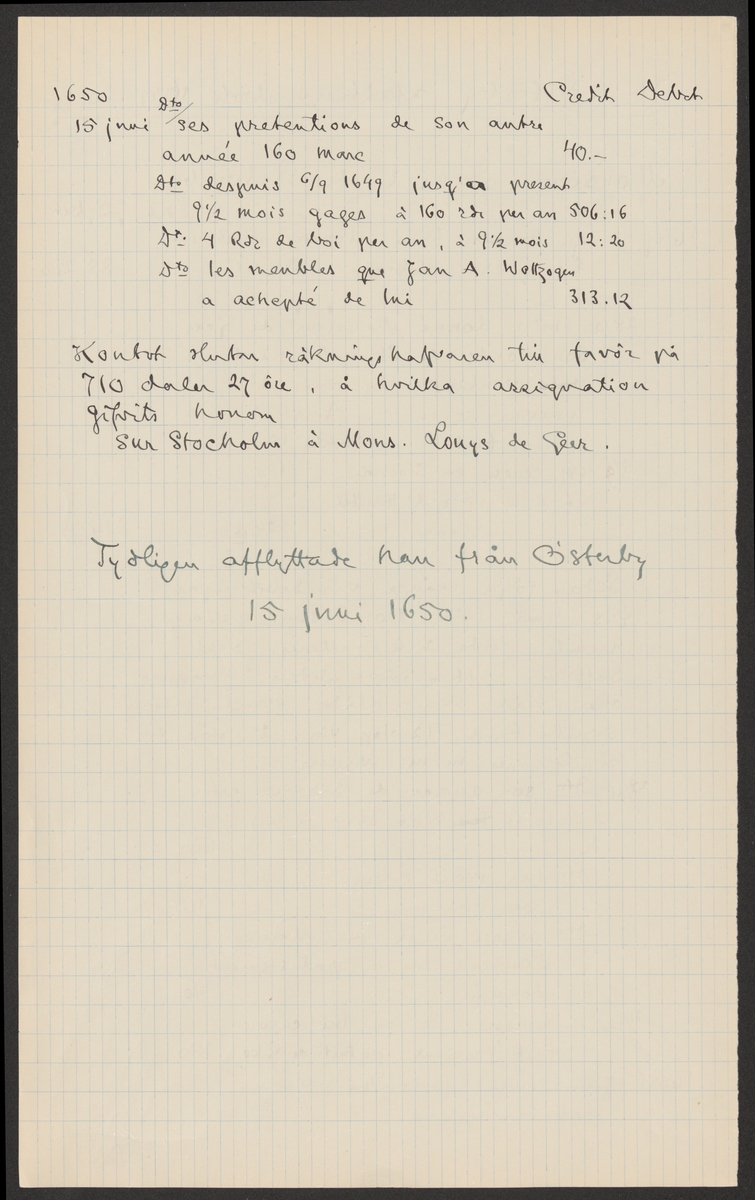 1650 Credit Debet
15 juni Dto/ ses pretentions de son autre
année 160 marc 40.-
Dto despuis 6/9 1649 jusq'a present
9 1/2 mois gages à 160 rdr per an 506:16
Dto 4 Rdr de boi per an, à 9 1/2 mois 12:20
Dto les meubles que Jan A. Woltzogen
a achepté de lui 313.12
Kontot slutar räkningshafvaren till favör på
710 daler 27 öre, å hvilka assignation
gifvits honom
sur Stocholm à Mons. Louys de Geer.
Tydligen afflyttade han från Österby
15 juni 1650.